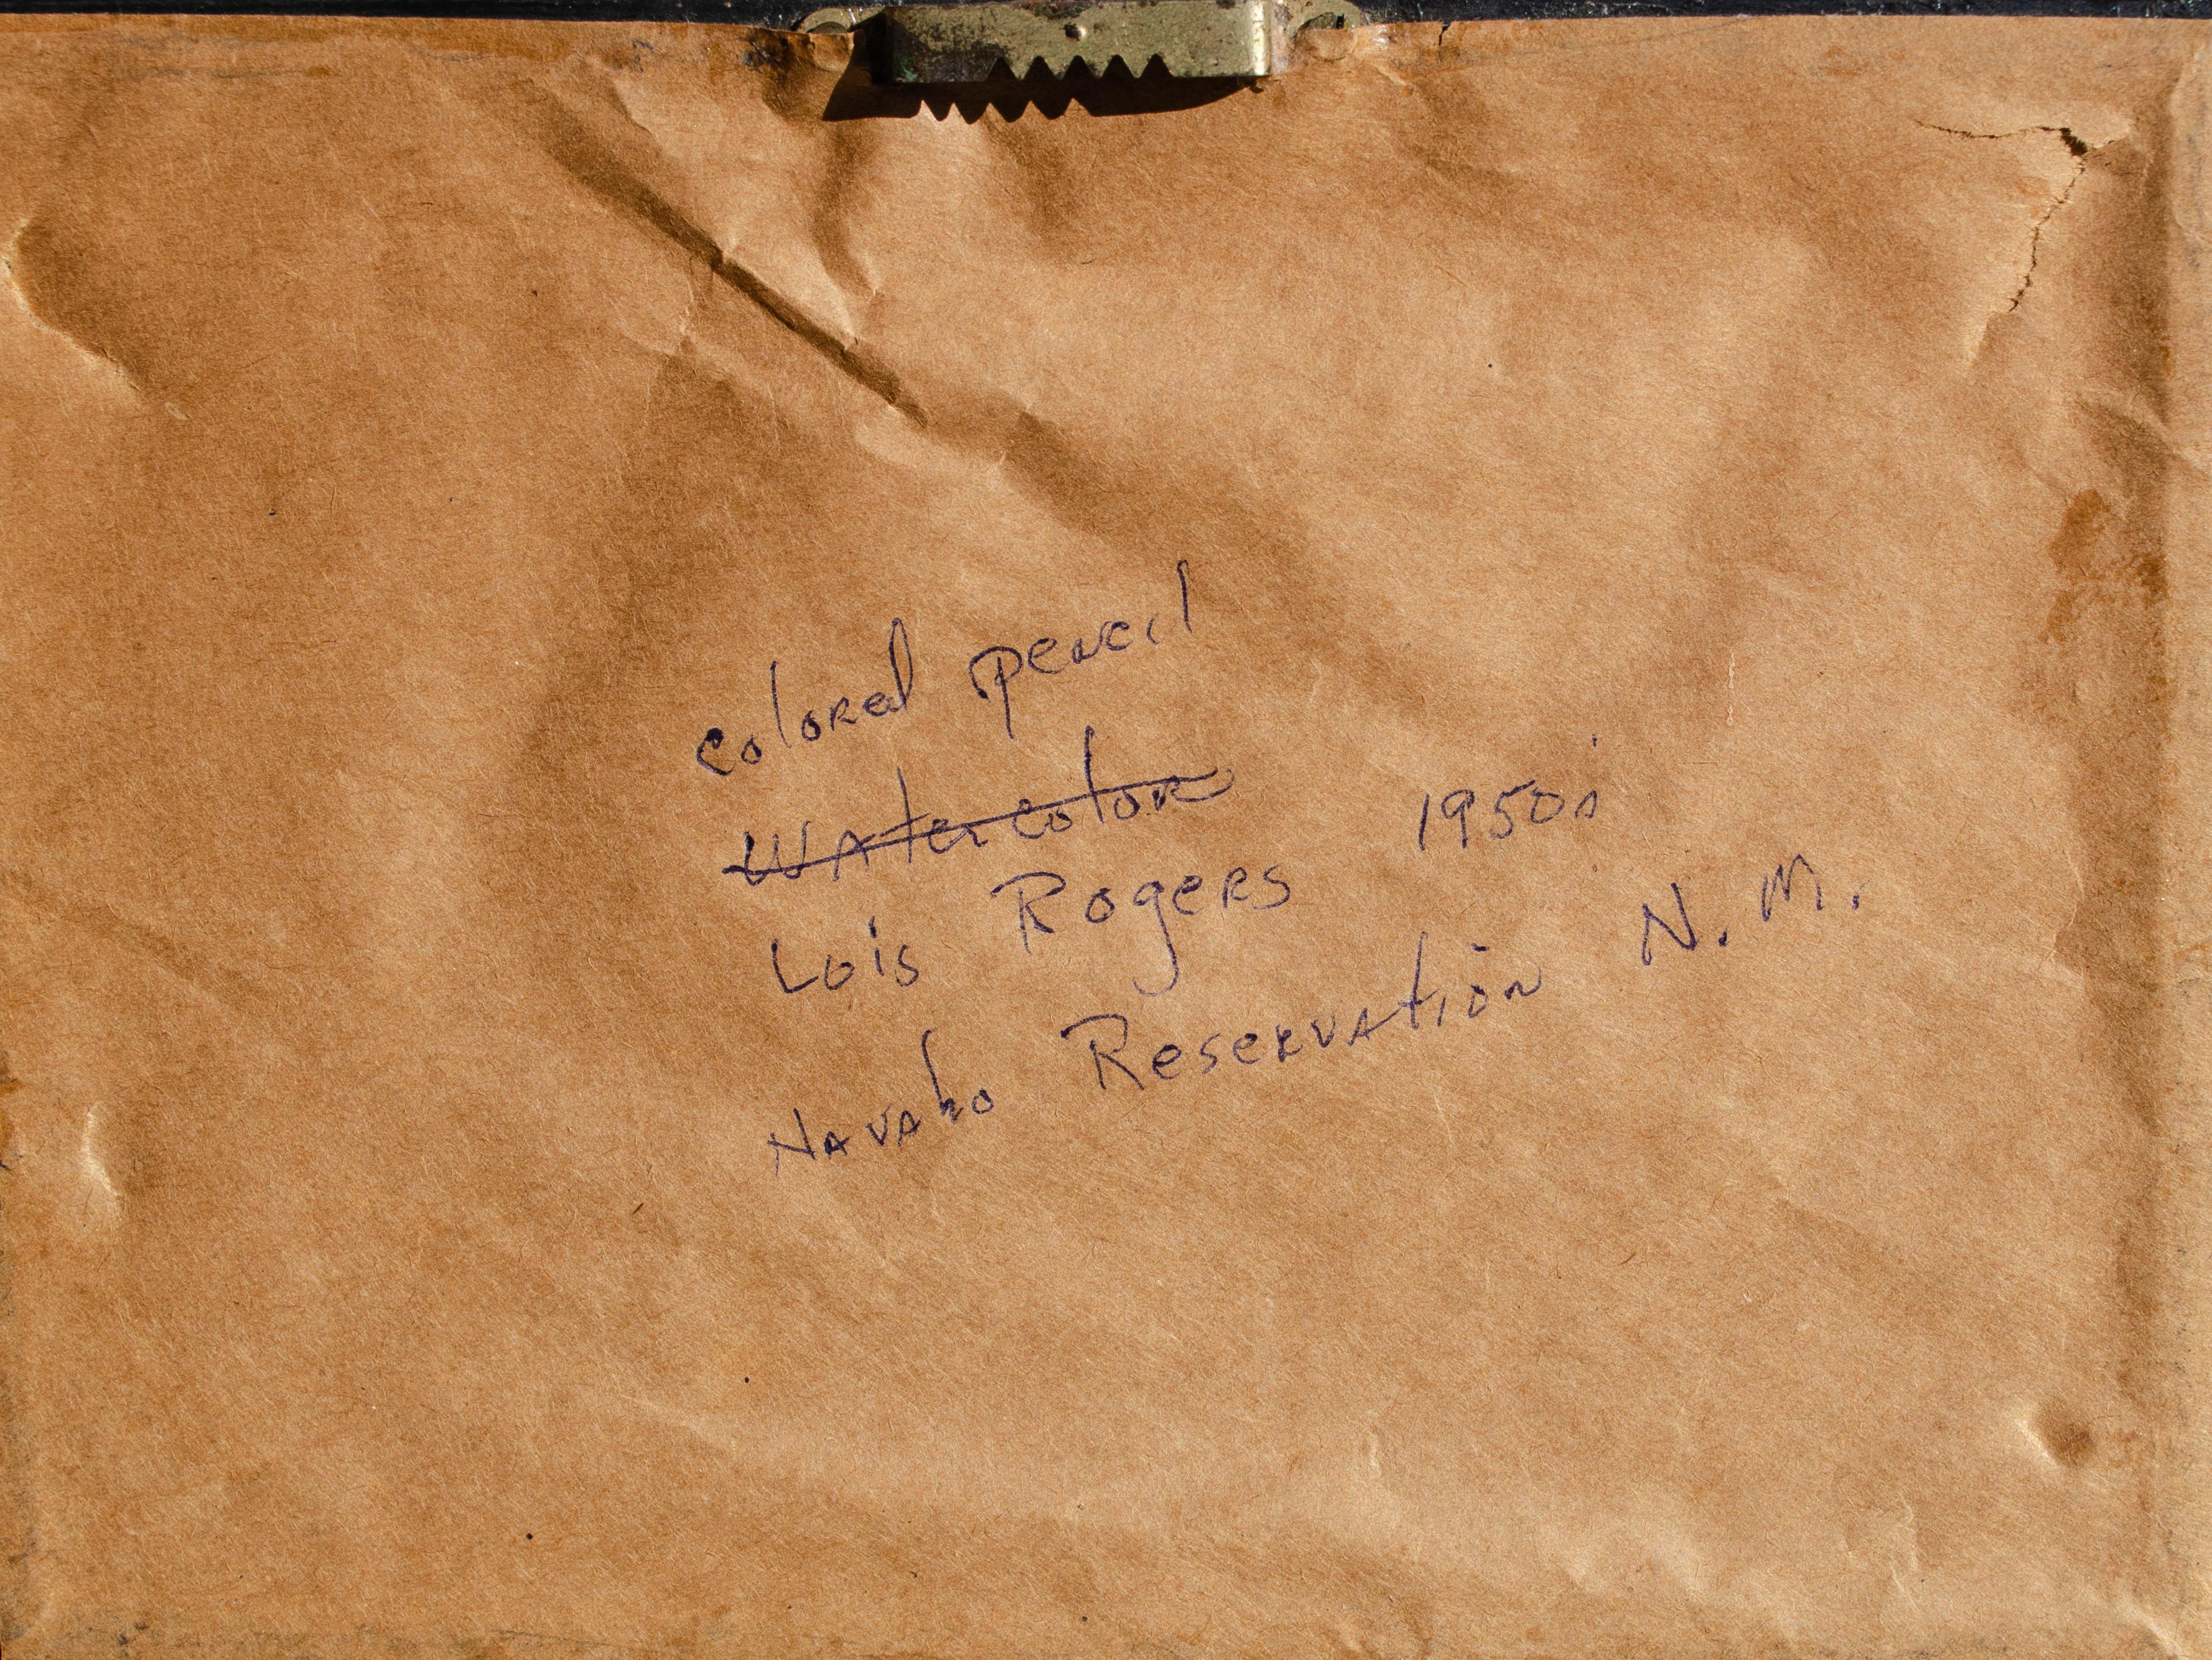 colored pencil
Watercolor
Lois Rogers 1950s
Navaho Reservation N.M.